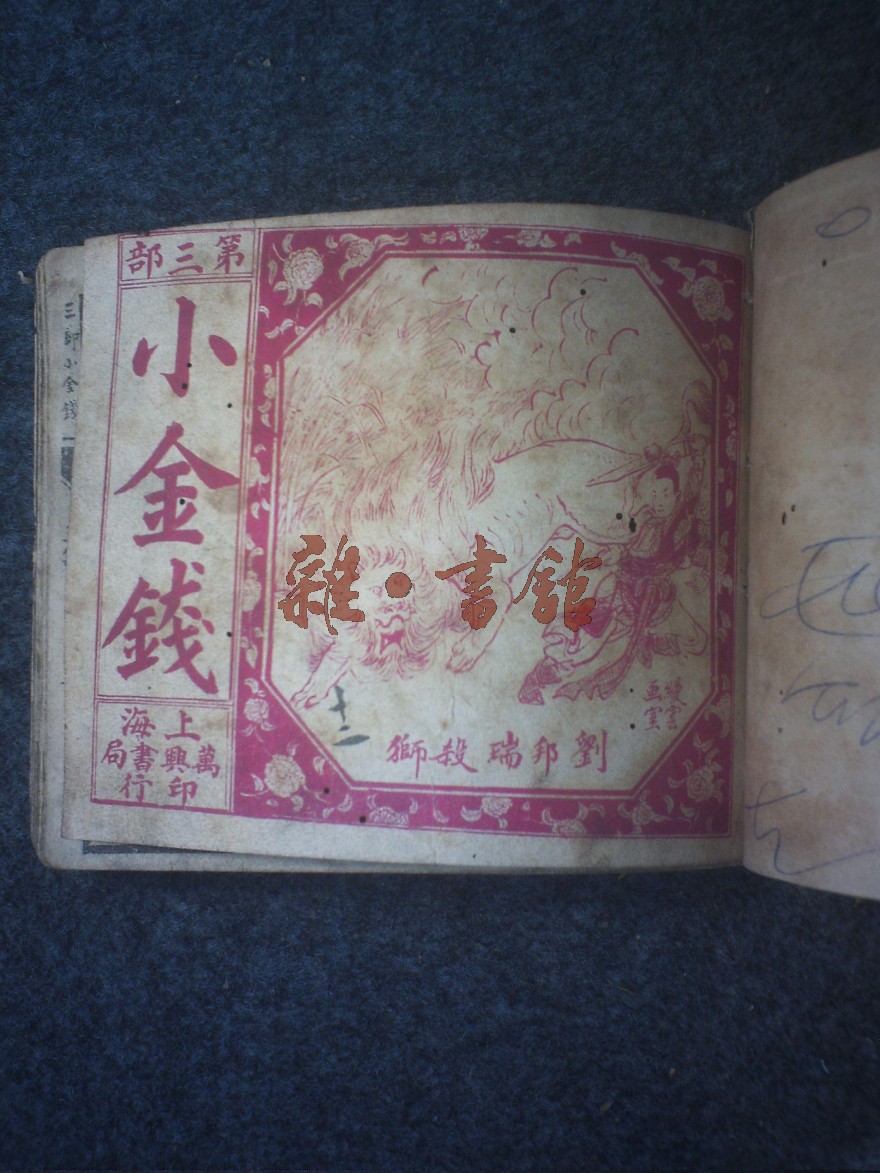 第三部
小金錢
上海
萬興書局
印行
劉邦瑞殺獅
画室
十二
雜·書館
三部小金錢一